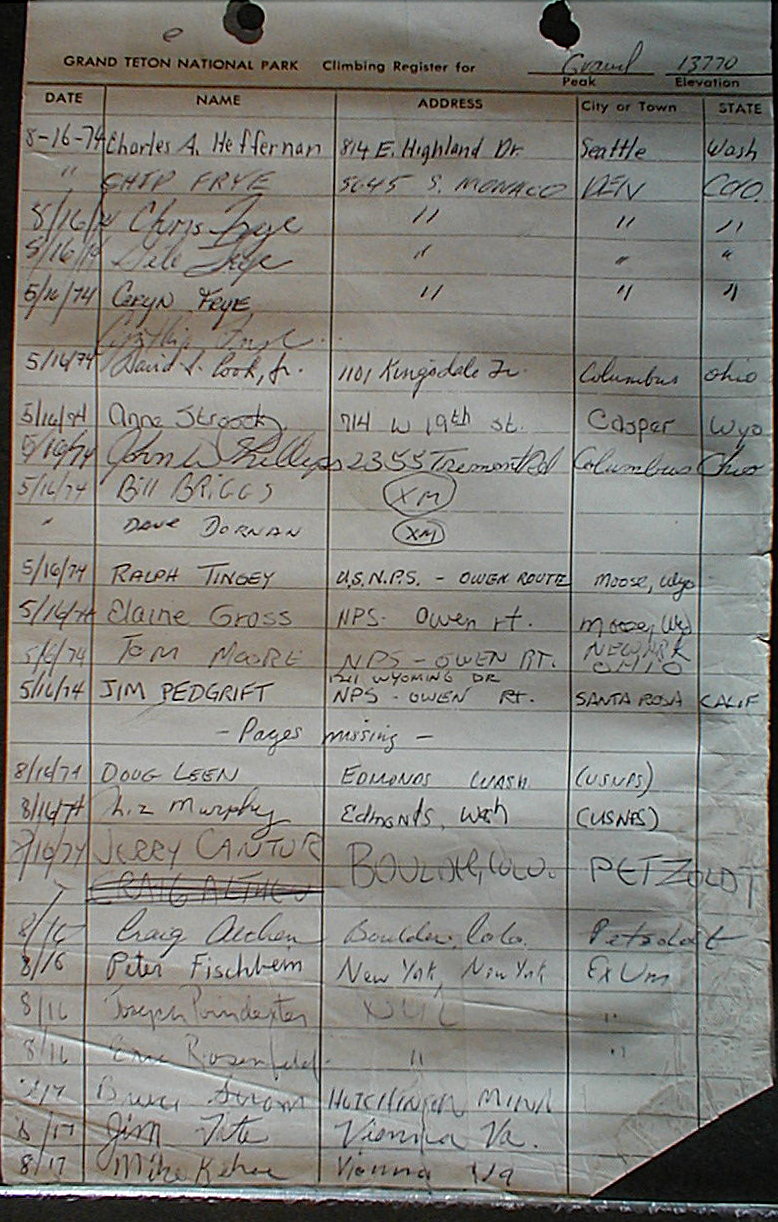 GRAND TETON NATIONAL PARK Climbing Register for Grand 13770
Peak Elevation
DATE NAME ADDRESS City or Town STATE
8-16-74 Charles A. Heffernan 814 E. Highland Dr. Seattle Wash
" CHIP FRYE 5645 S. MONACO DEN COLO.
8/16/74 Chris Frye " " "
5/16/74 Frye " " "
5/16/74 CERYN FRYE " " "
Cynthia Frye
5/16/74 David S. Cook, Jr. 1101 Kingsdale Columbus Ohio
5/16/74 Anne Stroock 714 W 19th St. Casper Wyo
5/16/74 John W Phillips 2355 Tremont Rd Columbus Ohio
5/16/74 Bill BRIGGS XM
" DAVE DORNAN XM
5/16/74 RALPH TINGEY U.S.N.P.S. - OWEN ROUTE Moose, Wyo
5/16/74 Elaine Gross NPS- Owen rt. Moose, Wy
5/16/74 TOM MOORE NPS - OWEN RT. NEWARK OHIO
1211 WYOMING DR
5/16/74 JIM PEDGRIFT NPS - OWEN Rt. SANTA ROSA CALIF
- Pages missing -
8/16/74 DOUG LEEN EDMONDS WASH (USNPS)
8/16/74 Liz Murphy Edmonds, Wash (USNPS)
8/16/74 JERRY CANTOR BOULDER, COLO. PETZOLDT
CRAIG
8/16 Craig Boulder, Colo. Petzoldt
8/16 Peter Fischbein New York, New York ExUm
8/16 Joseph Poindexter "
8/16 Eric Rosenfeld " "
8/17 Bruce Strom HUTCHINSON MINN
8/17 Jim Tate Vienna Va.
8/17 Mike Vienna Va